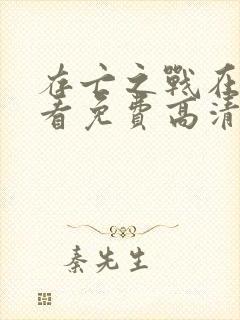 存亡之戰在
看免費高清
秦先生